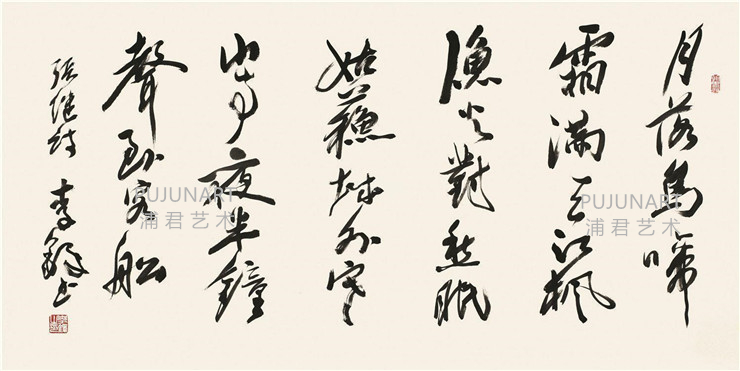 月落烏啼
霜滿天江楓
漁火對愁眠
姑蘇城外寒
山寺夜半鐘
聲到客船
张继诗 李
PUJUNART
浦君艺术
PUJUNART
浦君艺术